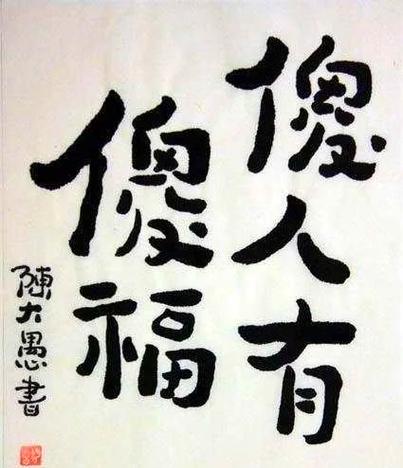 傻人有
傻福
陳大愚書